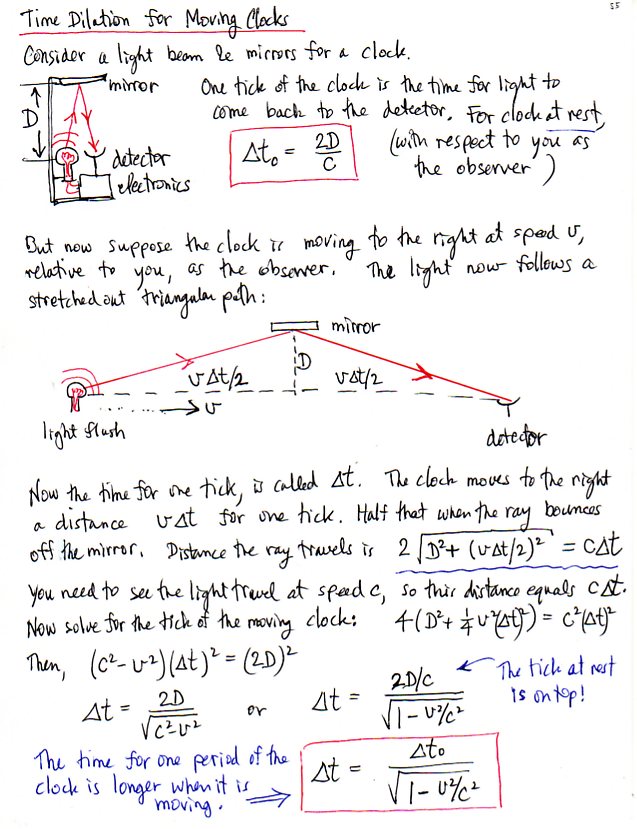 55
Time Dilation for Moving Clocks
Consider a light beam & mirrors for a clock.
mirror
D
detector
electronics
One tick of the clock is the time for light to
come back to the detector. For clock at rest,
(with respect to you as
the observer)
Δt₀ = 2D/C
But now suppose the clock is moving to the right at speed v,
relative to you, as the observer. The light now follows a
stretched out triangular path:
mirror
D
vΔt/2 vΔt/2
v
light flash
detector
Now the time for one tick, is called Δt. The clock moves to the right
a distance vΔt for one tick. Half that when the ray bounces
off the mirror. Distance the ray travels is 2√(D² + (vΔt/2)²) = cΔt
You need to see the light travel at speed c, so this distance equals cΔt.
Now solve for the tick of the moving clock: 4(D² + ¼v²(Δt)²) = c²(Δt)²
Then, (c² - v²)(Δt)² = (2D)²
Δt = 2D/√(c² - v²) or Δt = (2D/c)/√(1 - v²/c²)
The tick at rest
is on top!
The time for one period of the
clock is longer when it is
moving. ⟹
Δt = Δt₀/√(1 - v²/c²)